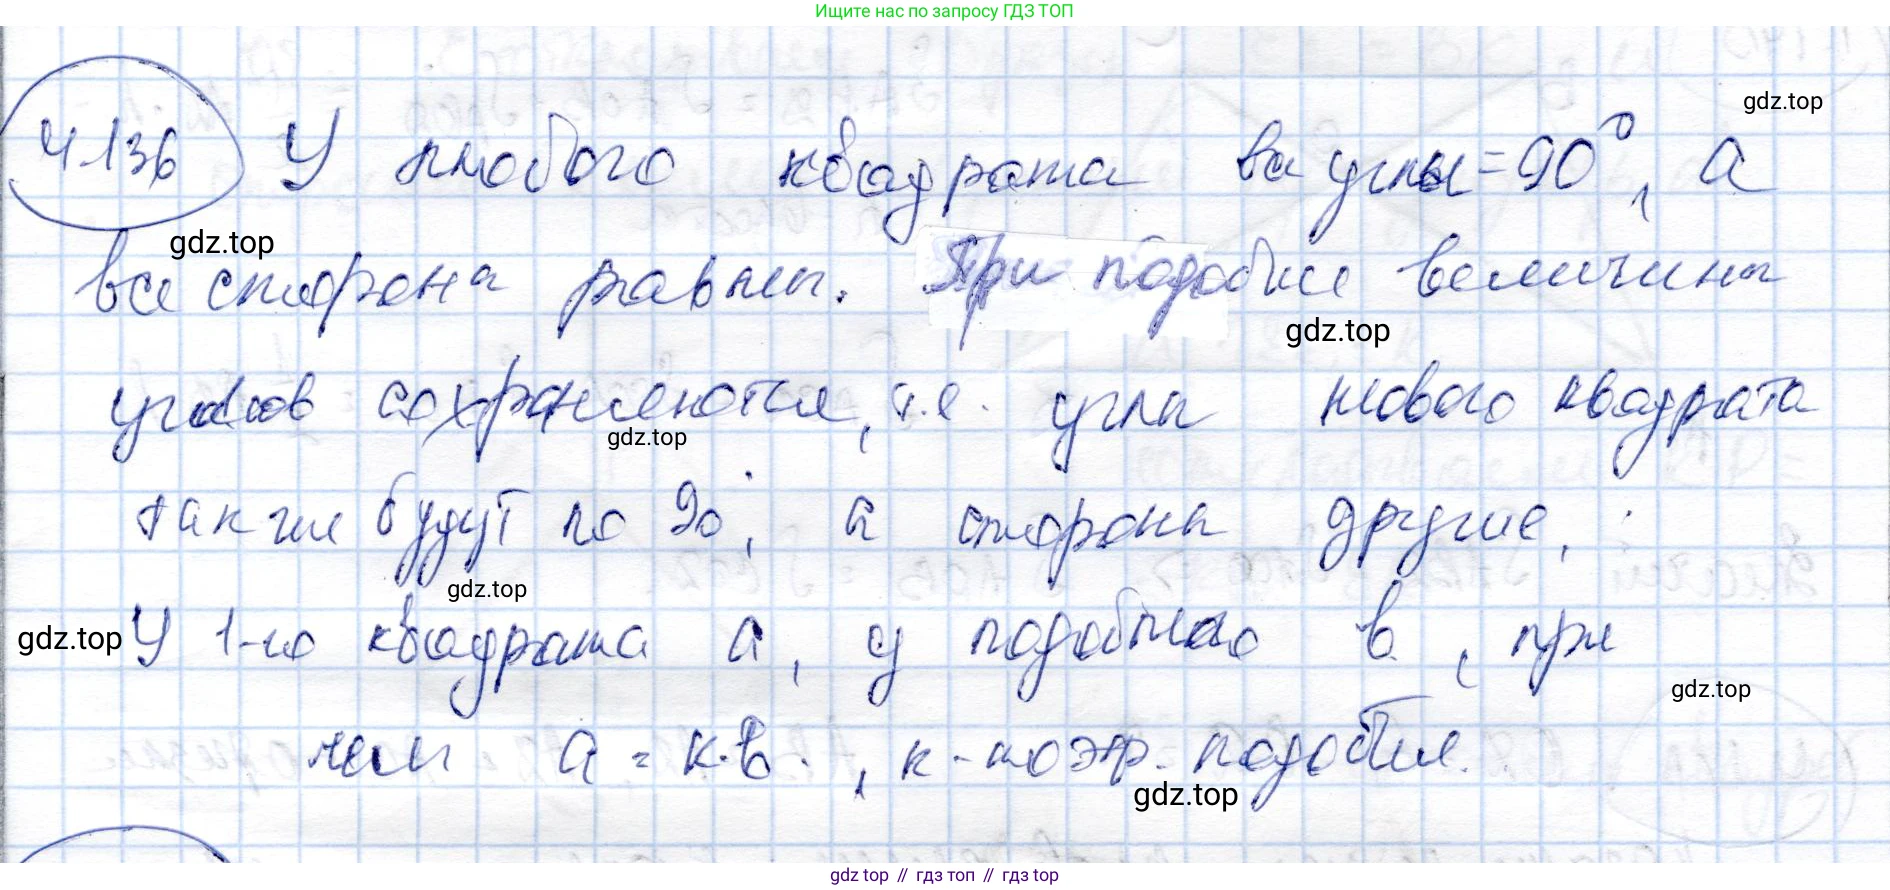 Ищите нас по запросу ГДЗ ТОП
gdz.top
4.136 У любого квадрата все углы = 90°, а
gdz.top
все стороны равны. При подобие величины
gdz.top
углов сохраняются, т.е. углы нового квадрата
gdz.top
также будут по 90°, а стороны другие,
gdz.top
gdz.top
У 1-го квадрата а, у подобного в, при
gdz.top
чем а = к·в, к - коэф. подобия.
gdz.top
gdz top // гдз топ // гдз top